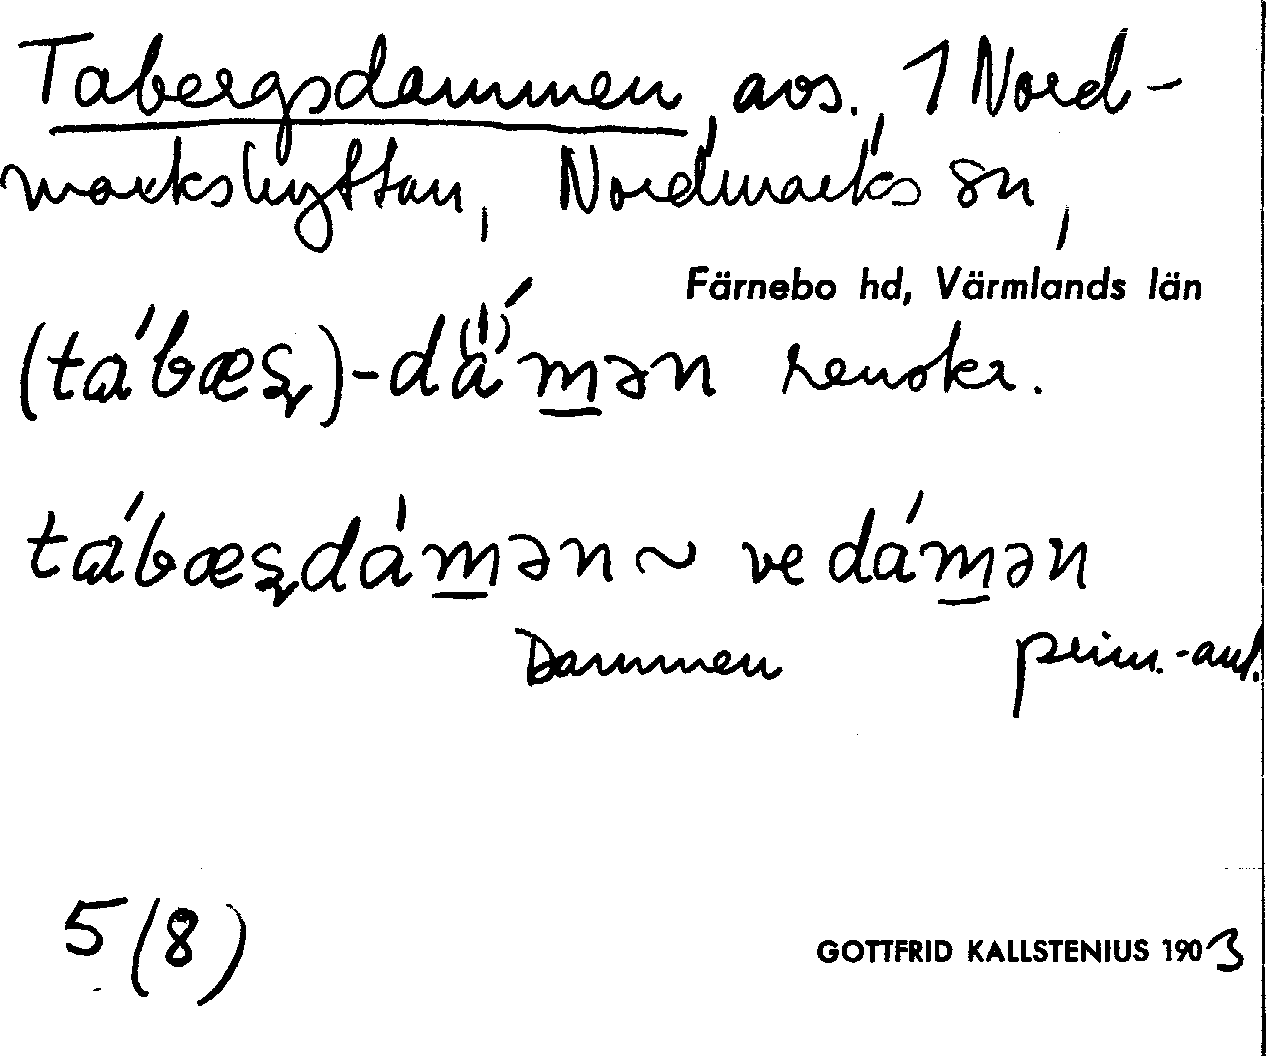 Tabergsdammen, avs., 1 Nord-
markshyttan, Nordmarks sn,
Färnebo hd, Värmlands län
(tɑ́bæʂ)-dɑ̈́m̲ən renskr.
tɑ́bæʂdɑ́m̲ən ~ ve dɑ́m̲ən
Dammen prim.-uppt.
5 (8)
GOTTFRID KALLSTENIUS 1903